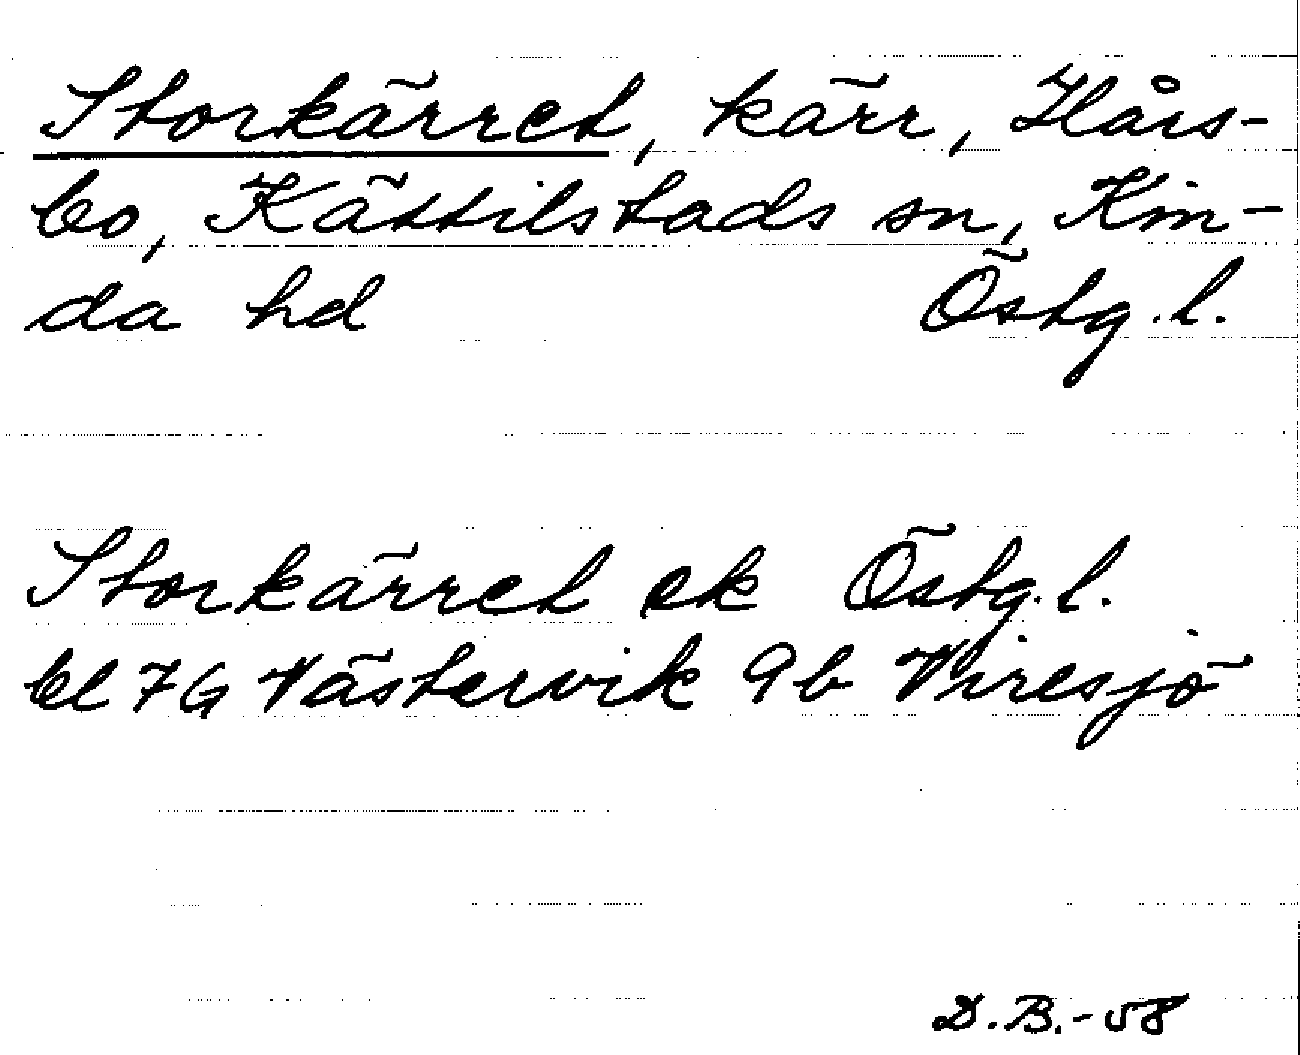 Storkärret, kärr, Hårs-
bo, Kättilstads sn, Kin-
da hd Östg. l.
Storkärret ek Östg. l.
bl 7G Västervik 9b Viresjö
D.B.-58